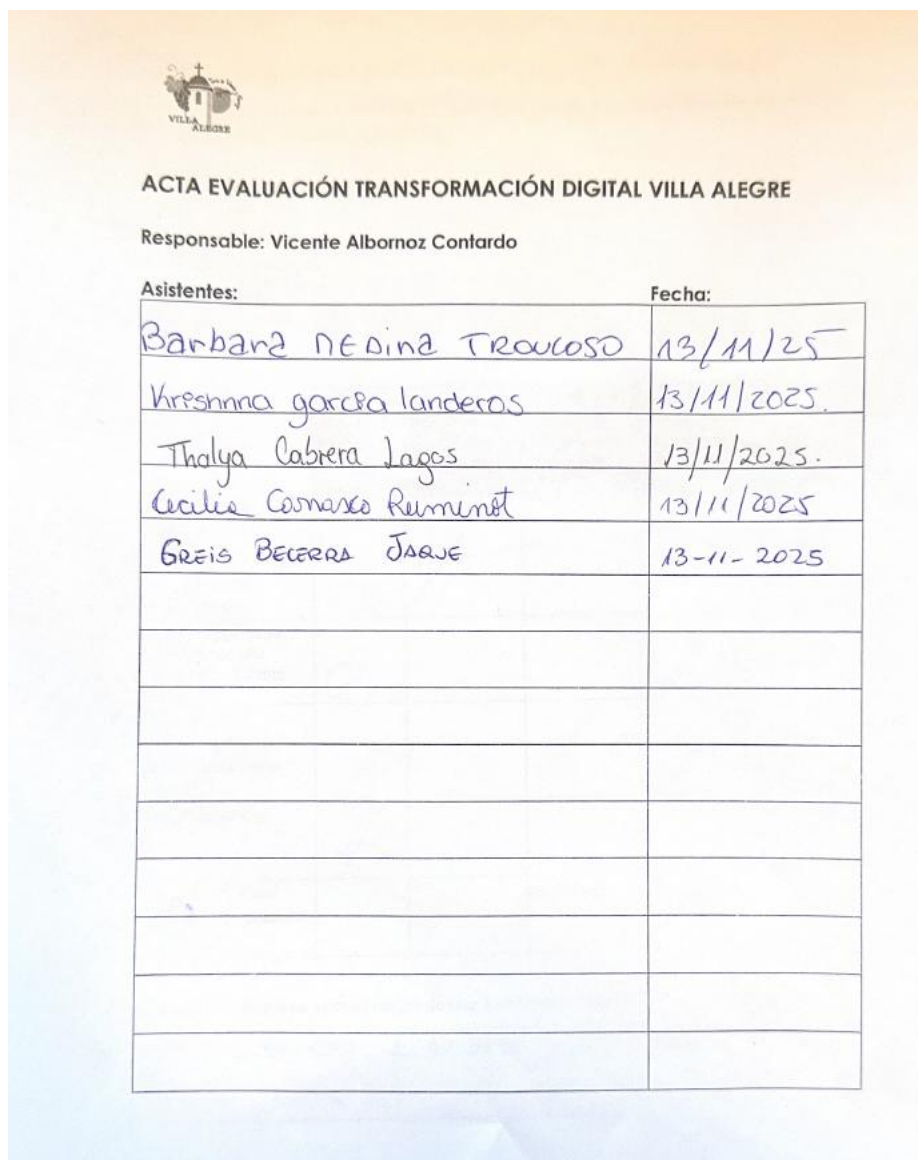 VILLA
ALEGRE
ACTA EVALUACIÓN TRANSFORMACIÓN DIGITAL VILLA ALEGRE
Responsable: Vicente Albornoz Contardo
Asistentes: Fecha:
Barbara MEDina TRONCOSO 13/11/25
Kreshnna garcía landeros 13/11/2025.
Thalya Cabrera Lagos 13/11/2025.
Cecilia 13/11/2025
GREIS BECERRA JAQUE 13-11-2025